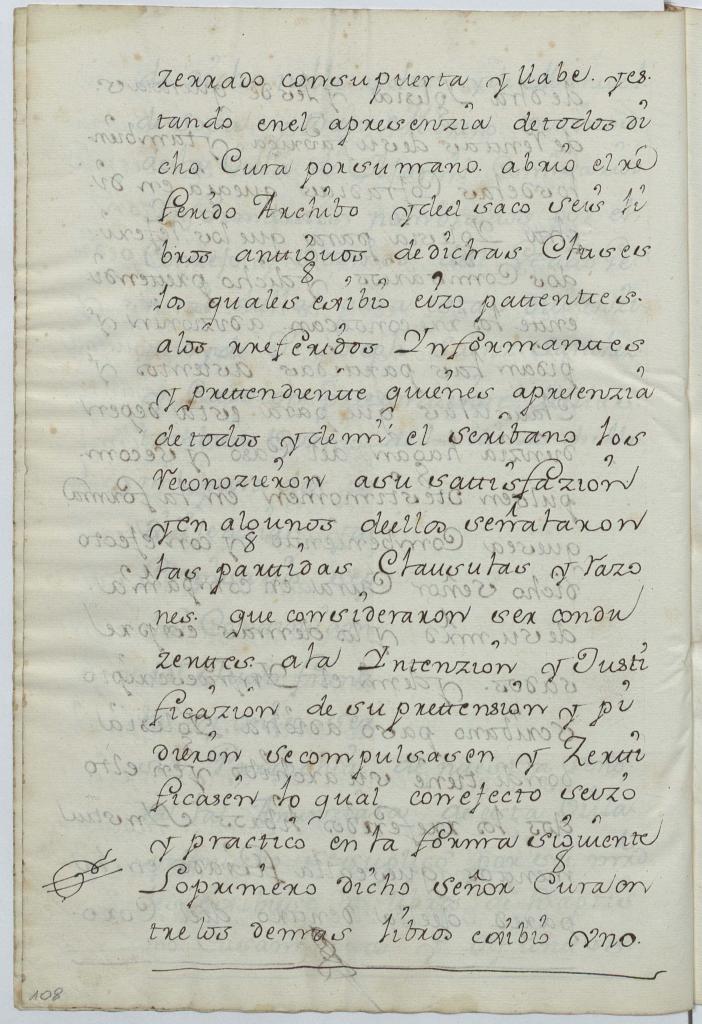 zerrado consupuerta y llabe. yes.
tando enel apresenzia detodos di
cho Cura porsumano. abrio el re
ferido Archibo ydeel saco seis li
bros anttiguos dedichas Clases
los quales exibio eizo pattenttes.
alos rreferidos Ynformanttes
y prettendientte quienes apresenzia
detodos ydemi el scribano los
reconozieron asu sattisfazion
yen algunos deellos señalaron
las parttidas Clausulas y razo
nes. que consideraron ser condu
zenttes ala Yntenzion y Justi
ficazion de su prettension y pi
dieron secompulsasen y Zertti
ficasen lo qual conefecto seizo
y practico enla forma siguiente
Loprimero dicho señor Cura en
tre los demas libros exibio vno.
108